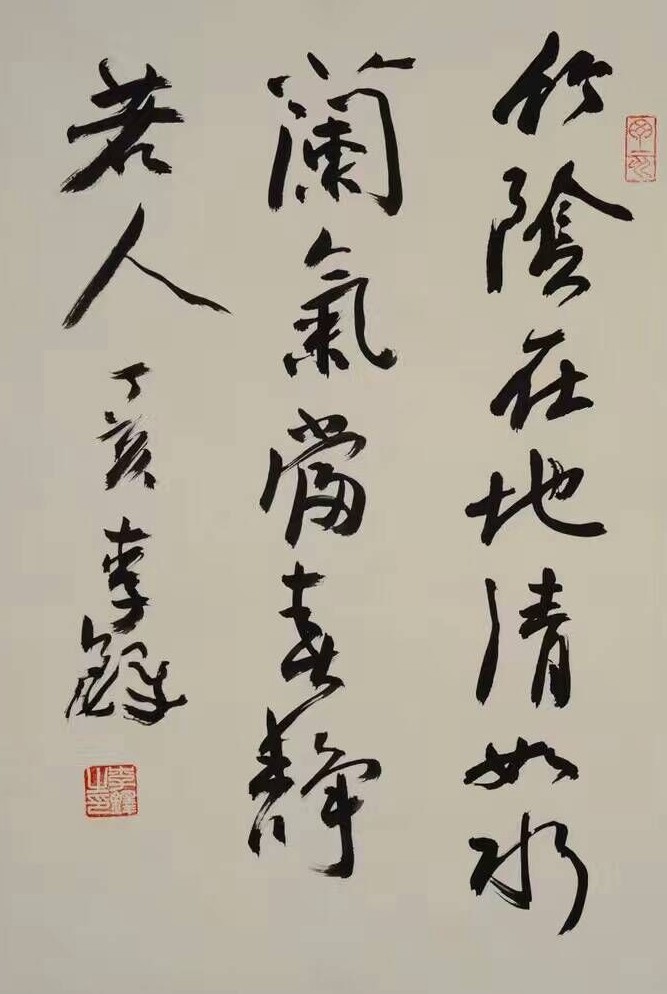 竹陰在地清如水
蘭氣當春靜
若人 丁亥 李鐸
李鐸之印